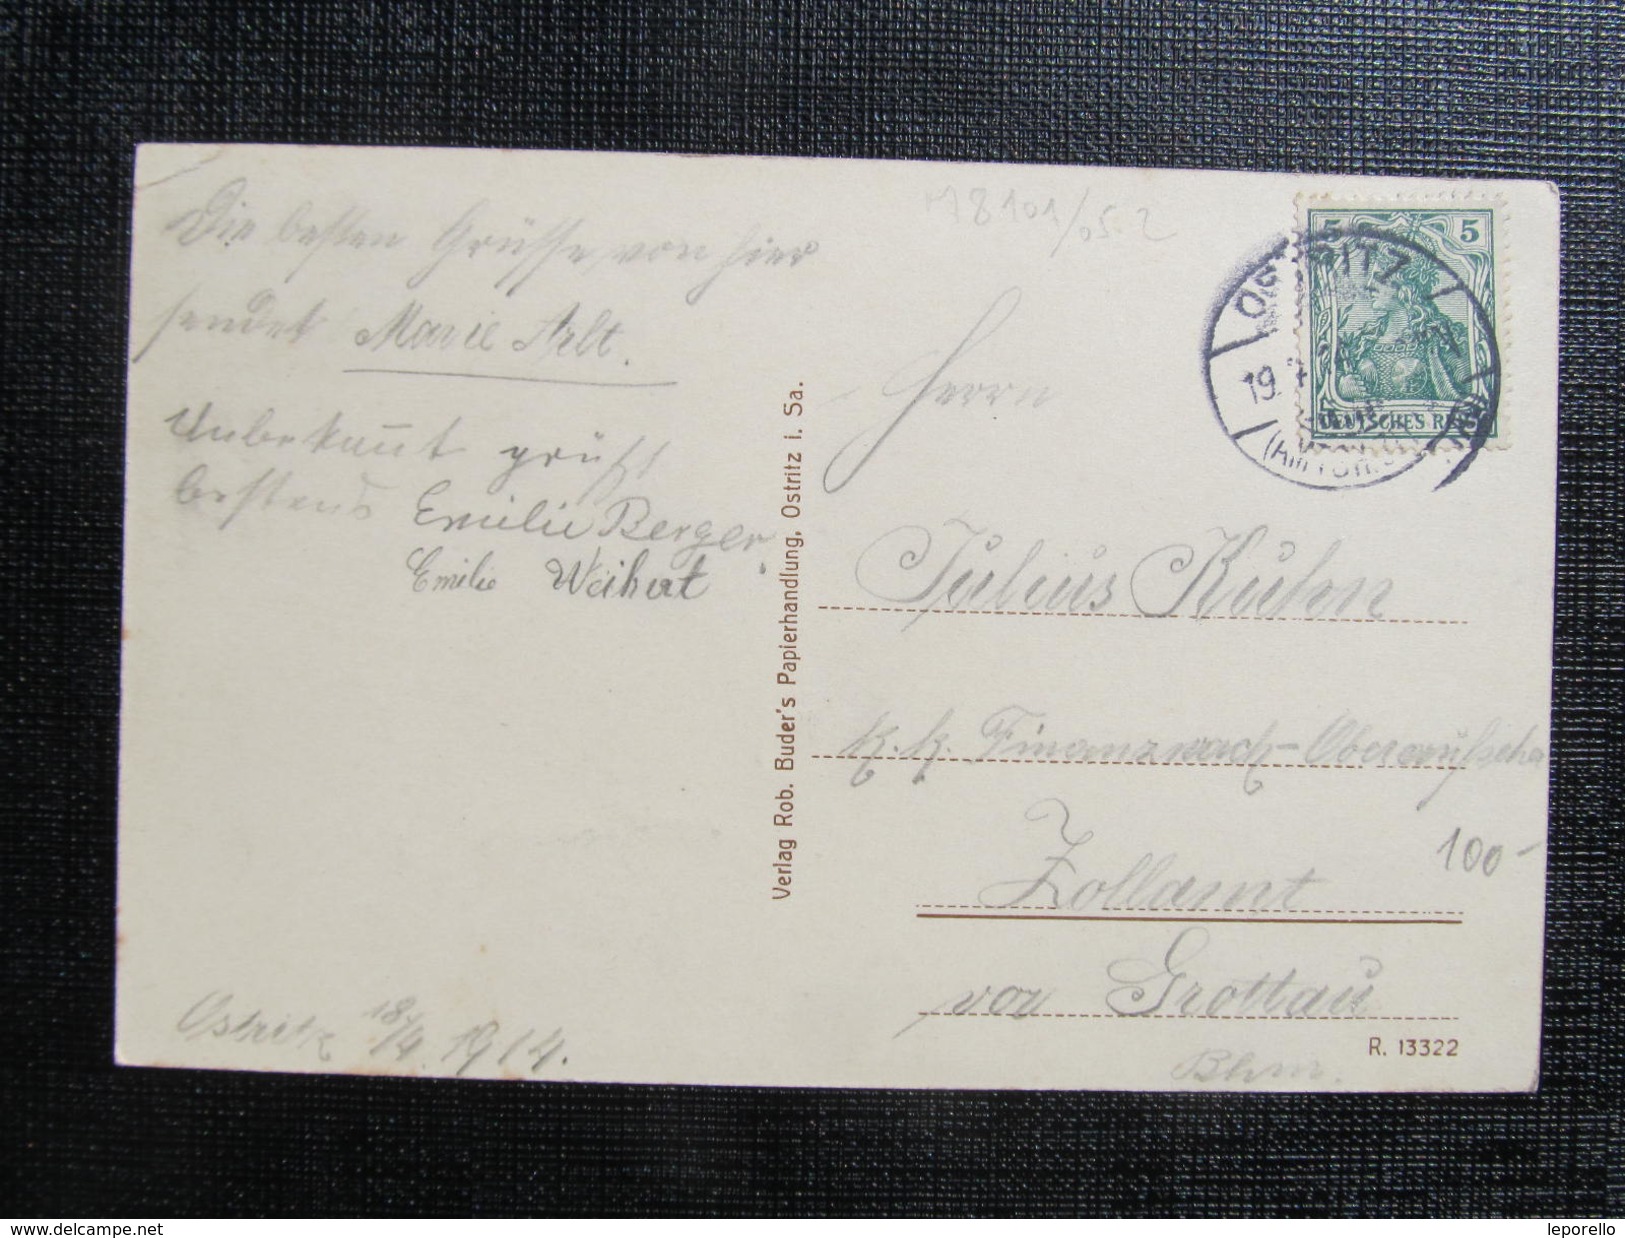 Die besten Grüsse von hier
sendet Marie Arlt.
Unbekannt grüßt
bestens Emilie Berger.
Emilie Weihert
Ostritz 18/4. 1914.
Verlag Rob. Buder's Papierhandlung, Ostritz i. Sa.
5 5
DEUTSCHES REICH
OSTRITZ
19. 4
Herrn
Julius Kuhn
k. k. Finanzwach-Oberaufseher
Zollamt
vor Grottau
Bhm.
100-
R. 13322
www.delcampe.net
leporello